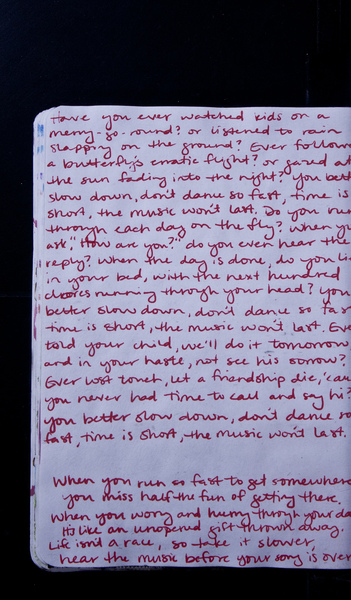 Have you ever watched kids on a
merry-go-round? or listened to rain
slapping on the ground? Ever follow
a butterfly's erratic flight? or gazed at
the sun fading into the night? You bett
slow down, don't dance so fast, time is
short, the music won't last. Do you run
through each day on the fly? When yo
ask, "How are you?", do you even hear the
reply? When the day is done, do you li
in your bed, with the next hundred
chores running through your head? You
better slow down, don't dance so fas
time is short, the music won't last. Eve
told your child, we'll do it tomorrow
and in your haste, not see his sorrow?
Ever lost touch, let a friendship die, 'cau
you never had time to call and say hi?
you better slow down, don't dance so
fast, time is short, the music won't last.
When you run so fast to get somewhere
you miss half the fun of getting there.
When you worry and hurry through your da
It's like an unopened gift thrown away.
Life isn't a race, so take it slower,
hear the music before your song is over